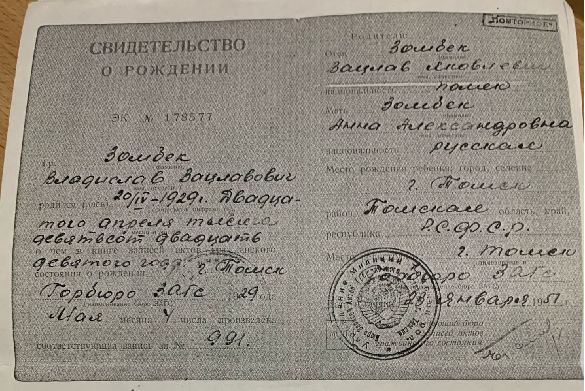 СВИДЕТЕЛЬСТВО
О РОЖДЕНИИ
ЭК № 178577
Гр. Зомбек
Владислав Вацлавович
родился (лась) 20/IV-1929г. Двадца-
того апреля тысяча
девятьсот двадцать
девятого года
состояния о рождении г. Томск
Горбюро ЗАГС 29 года
Мая месяца 4 числа произведена
соответствующая запись за № 991.
Повторное
Родители:
Отец Зомбек
Вацлав Яковлевич
национальность поляк
Мать Зомбек
Анна Александровна
национальность русская
Место рождения ребёнка: город, селение
г. Томск
район Томская область, край,
республика Р.С.Ф.С.Р.
г. Томск
бюро ЗАГС
января 1951 г.